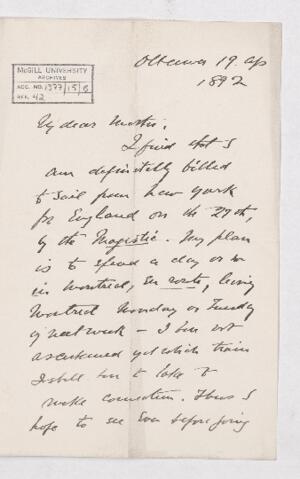 McGILL UNIVERSITY
ARCHIVES
ACC. NO. 1377/15/6
REF. 42
Ottawa 19. Ap
1892
My dear
I find that I
am definitely billed
to sail from New York
for England on the 27th,
by the Magestic. My plan
is to spend a day or so
in Montreal, en route, leaving
Montreal Monday or Tuesday
of next week – I have not
ascertained yet which train
I shall have to take to
make connection. Thus I
hope to see